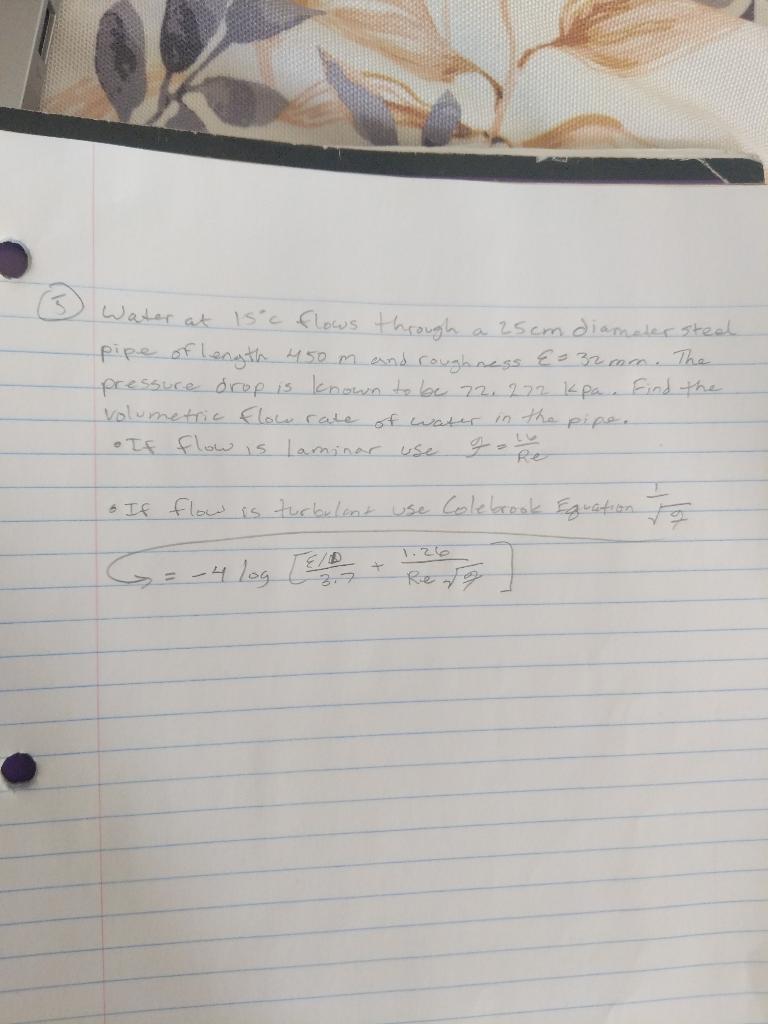 5 Water at 15°c flows through a 25cm diameter steel
pipe of length 450 m and roughness ε = 32 mm. The
pressure drop is known to be 72.272 kpa. Find the
volumetric flow rate of water in the pipe.
• If flow is laminar use f = 16/Re
• If flow is turbulent use Colebrook Equation 1/√f
= -4 log [ (ε/D)/3.7 + 1.26/(Re √f) ]